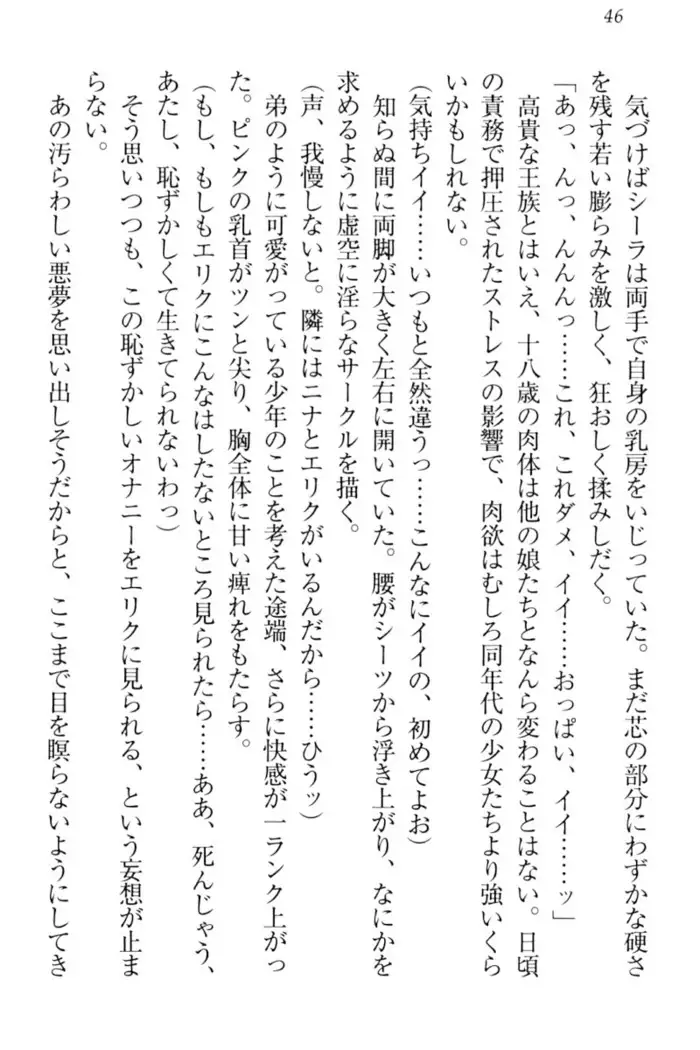 46
気づけばシーラは両手で自身の乳房をいじっていた。まだ芯の部分にわずかな硬さ
を残す若い膨らみを激しく、狂おしく揉みしだく。
「あっ、んっ、んんんっ……これ、これダメ、イイ……おっぱい、イイ……ッ」
高貴な王族とはいえ、十八歳の肉体は他の娘たちとなんら変わることはない。日頃
の責務で押圧されたストレスの影響で、肉欲はむしろ同年代の少女たちより強いくら
いかもしれない。
(気持ちイイ……いつもと全然違うっ……こんなにイイの、初めてよお)
知らぬ間に両脚が大きく左右に開いていた。腰がシーツから浮き上がり、なにかを
求めるように虚空に淫らなサークルを描く。
(声、我慢しないと。隣にはニナとエリクがいるんだから……ひうッ)
弟のように可愛がっている少年のことを考えた途端、さらに快感が一ランク上がっ
た。ピンクの乳首がツンと尖り、胸全体に甘い痺れをもたらす。
(もし、もしもエリクにこんなはしたないところ見られたら……ああ、死んじゃう、
あたし、恥ずかしくて生きてられないわっ)
そう思いつつも、この恥ずかしいオナニーをエリクに見られる、という妄想が止ま
らない。
あの汚らわしい悪夢を思い出しそうだからと、ここまで目を瞑らないようにしてき